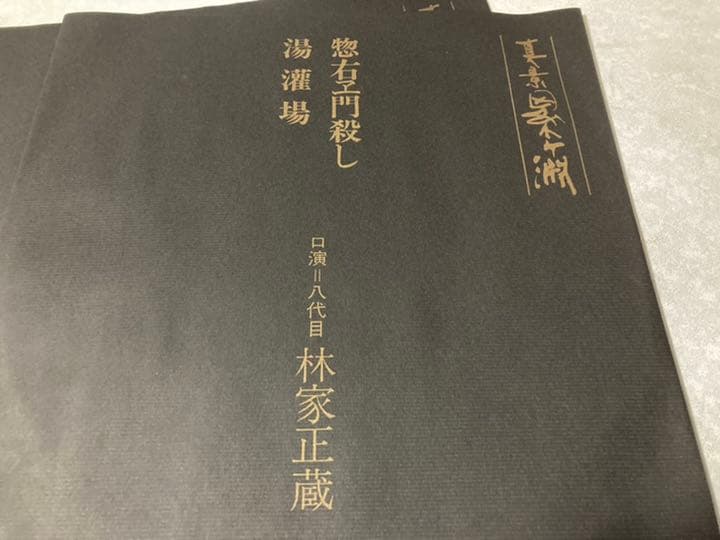 真景累ケ淵
惣右ヱ門殺し
湯灌場
口演=八代目 林家正蔵